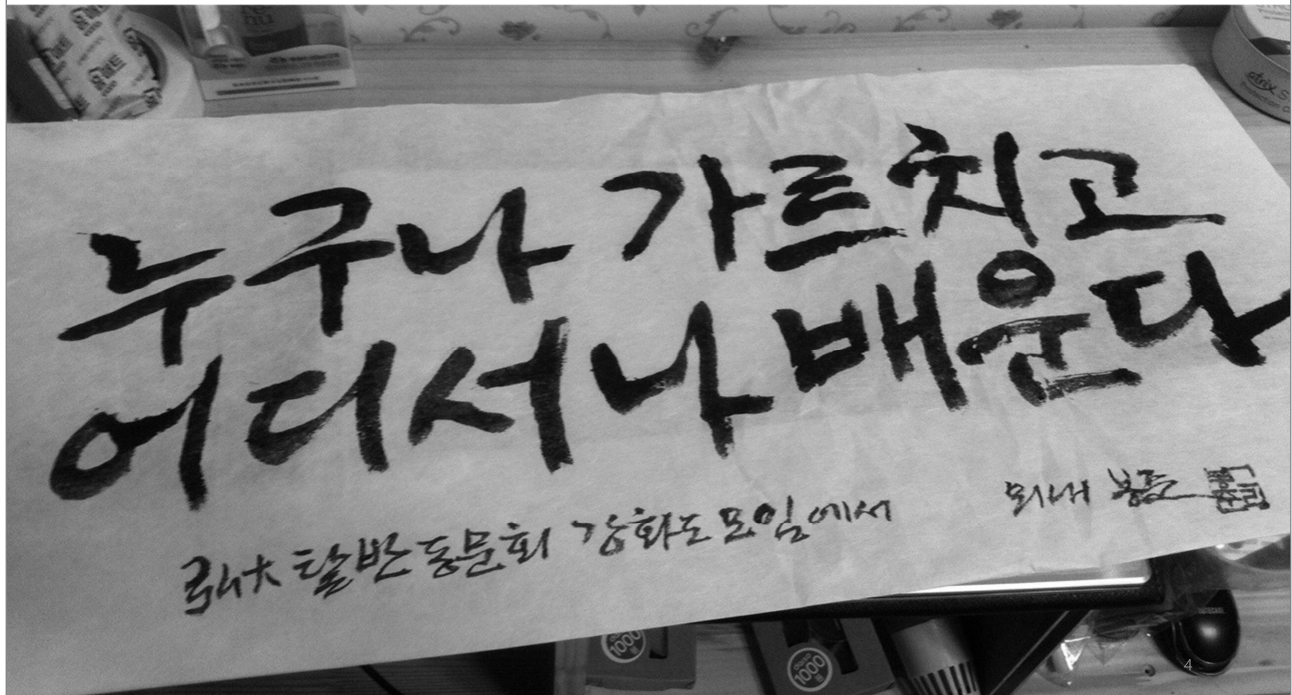 누구나 가르치고
어디서나 배운다
탈반 동문회 강화도 모임에서
뫼내 봉준
1000
1000
4